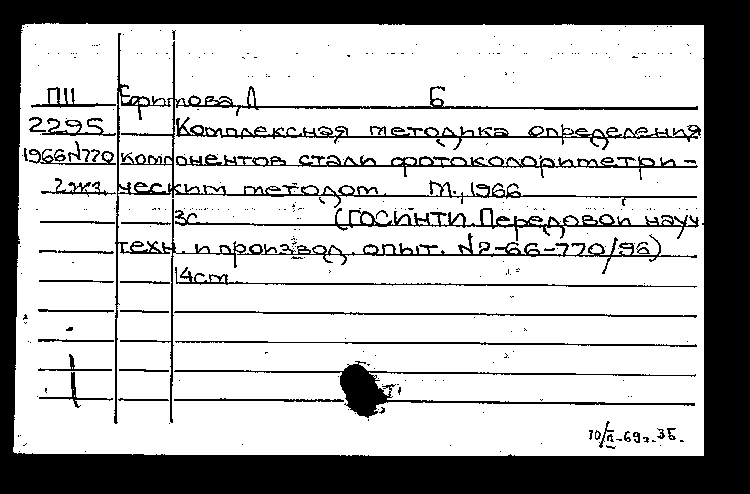 ПII Ефимова, Л Б
2295 Комплексная методика определения
1966 N770 компонентов стали фотоколориметри-
2 экз. ческим методом. М., 1966
3с. (ГОСИНТИ. Передовой науч.
техн. и производ. опыт. N2-66-770/96)
14см
10/II-69г. 3Б.